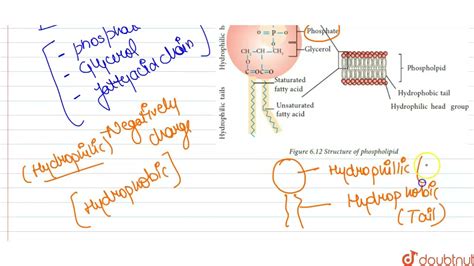 - phosphate
- Glycerol
- fattyacid chain
Negatively
charge
(Hydrophilic)
[Hydrophobic]
Hydrophilic h
Hydrophilic tails
Phosphate
Glycerol
O
O P O
O
CH₂ CH CH₂
O O
C O C O
Staturated
fatty acid
Unsaturated
fatty acid
Phospholipid
Hydrophobic tail
Hydrophilic head group
Figure 6.12 Structure of phospholipid
Hydrophillic
Hydrophobic
(Tail)
doubtnut